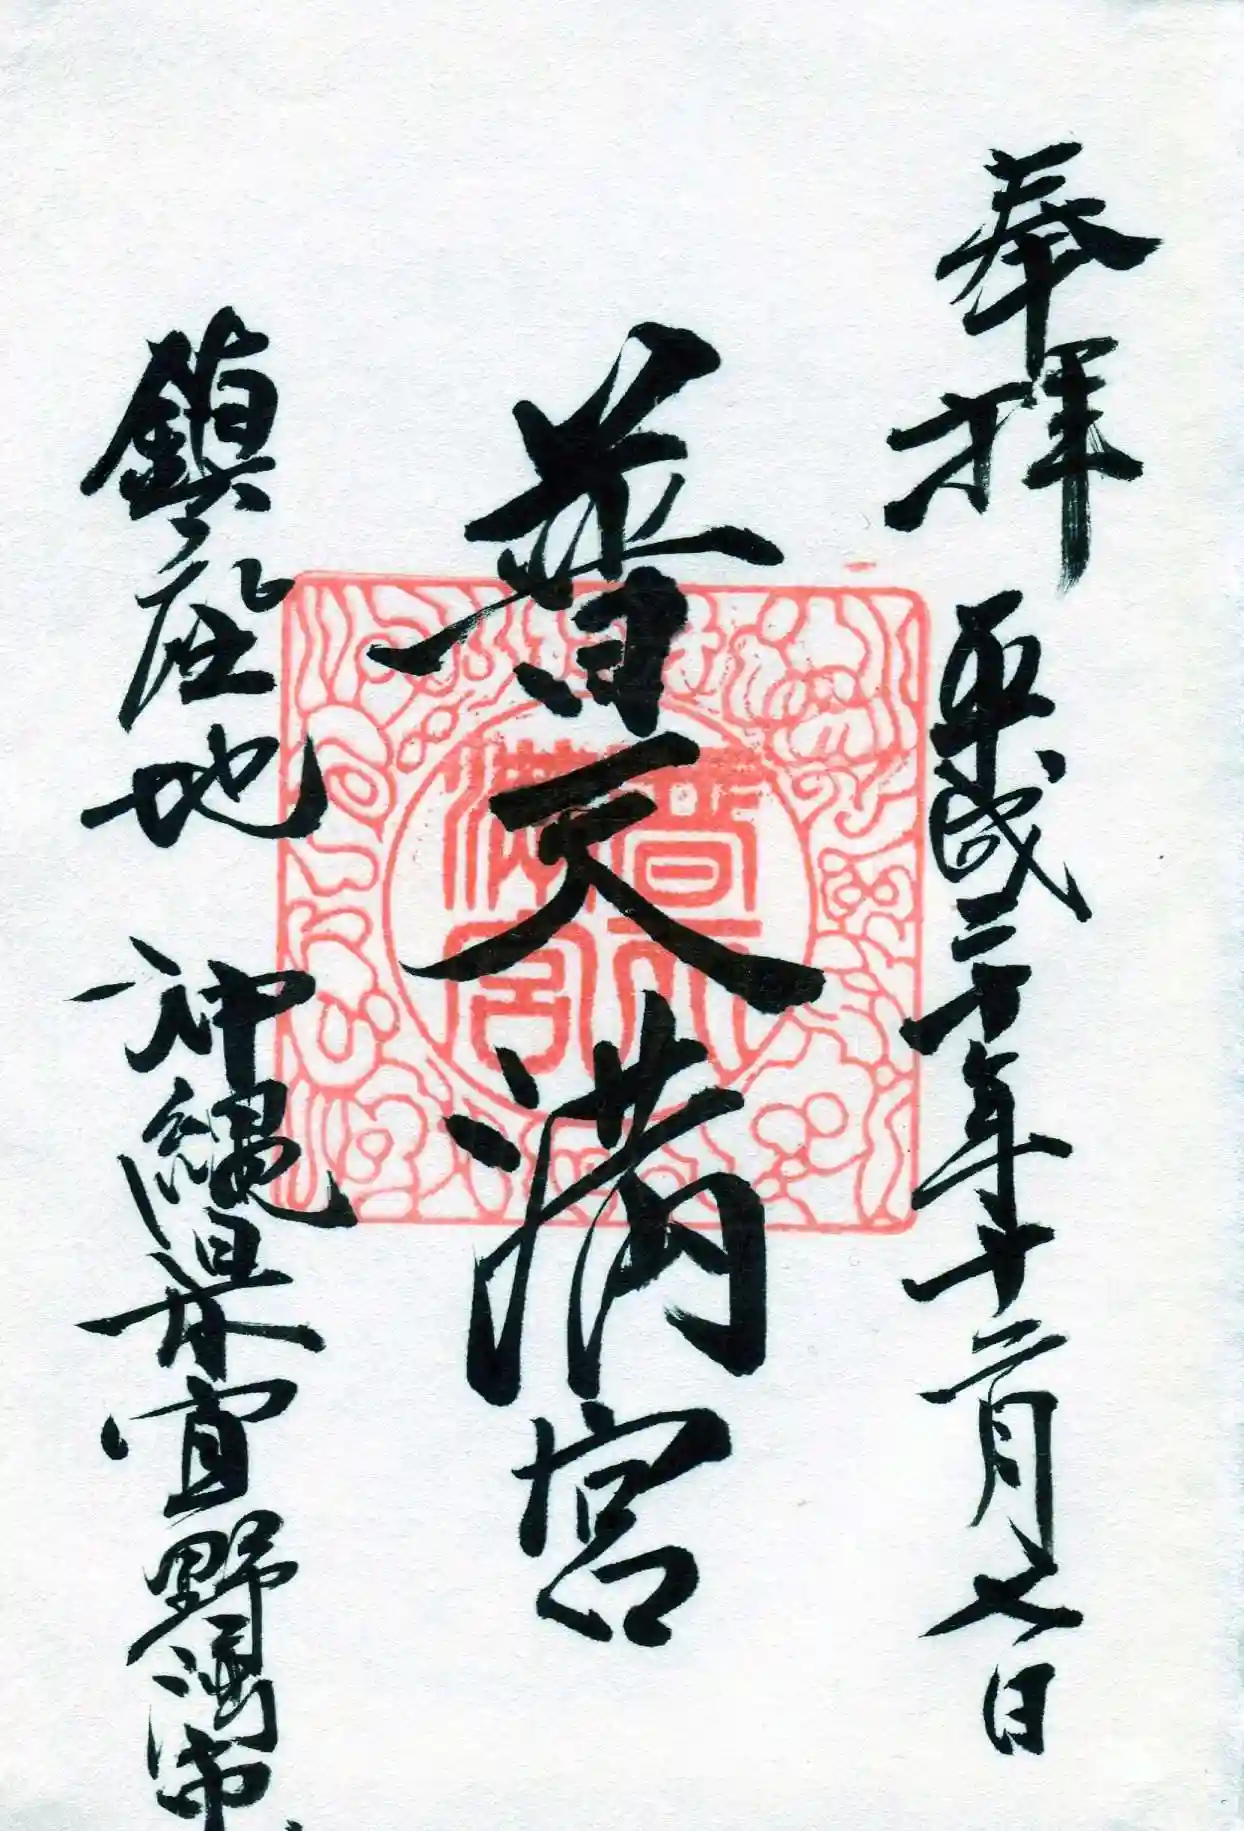 奉拝 平成二十年十二月七日
普天満宮
鎮座地 沖縄県宜野湾市
普天
満宮